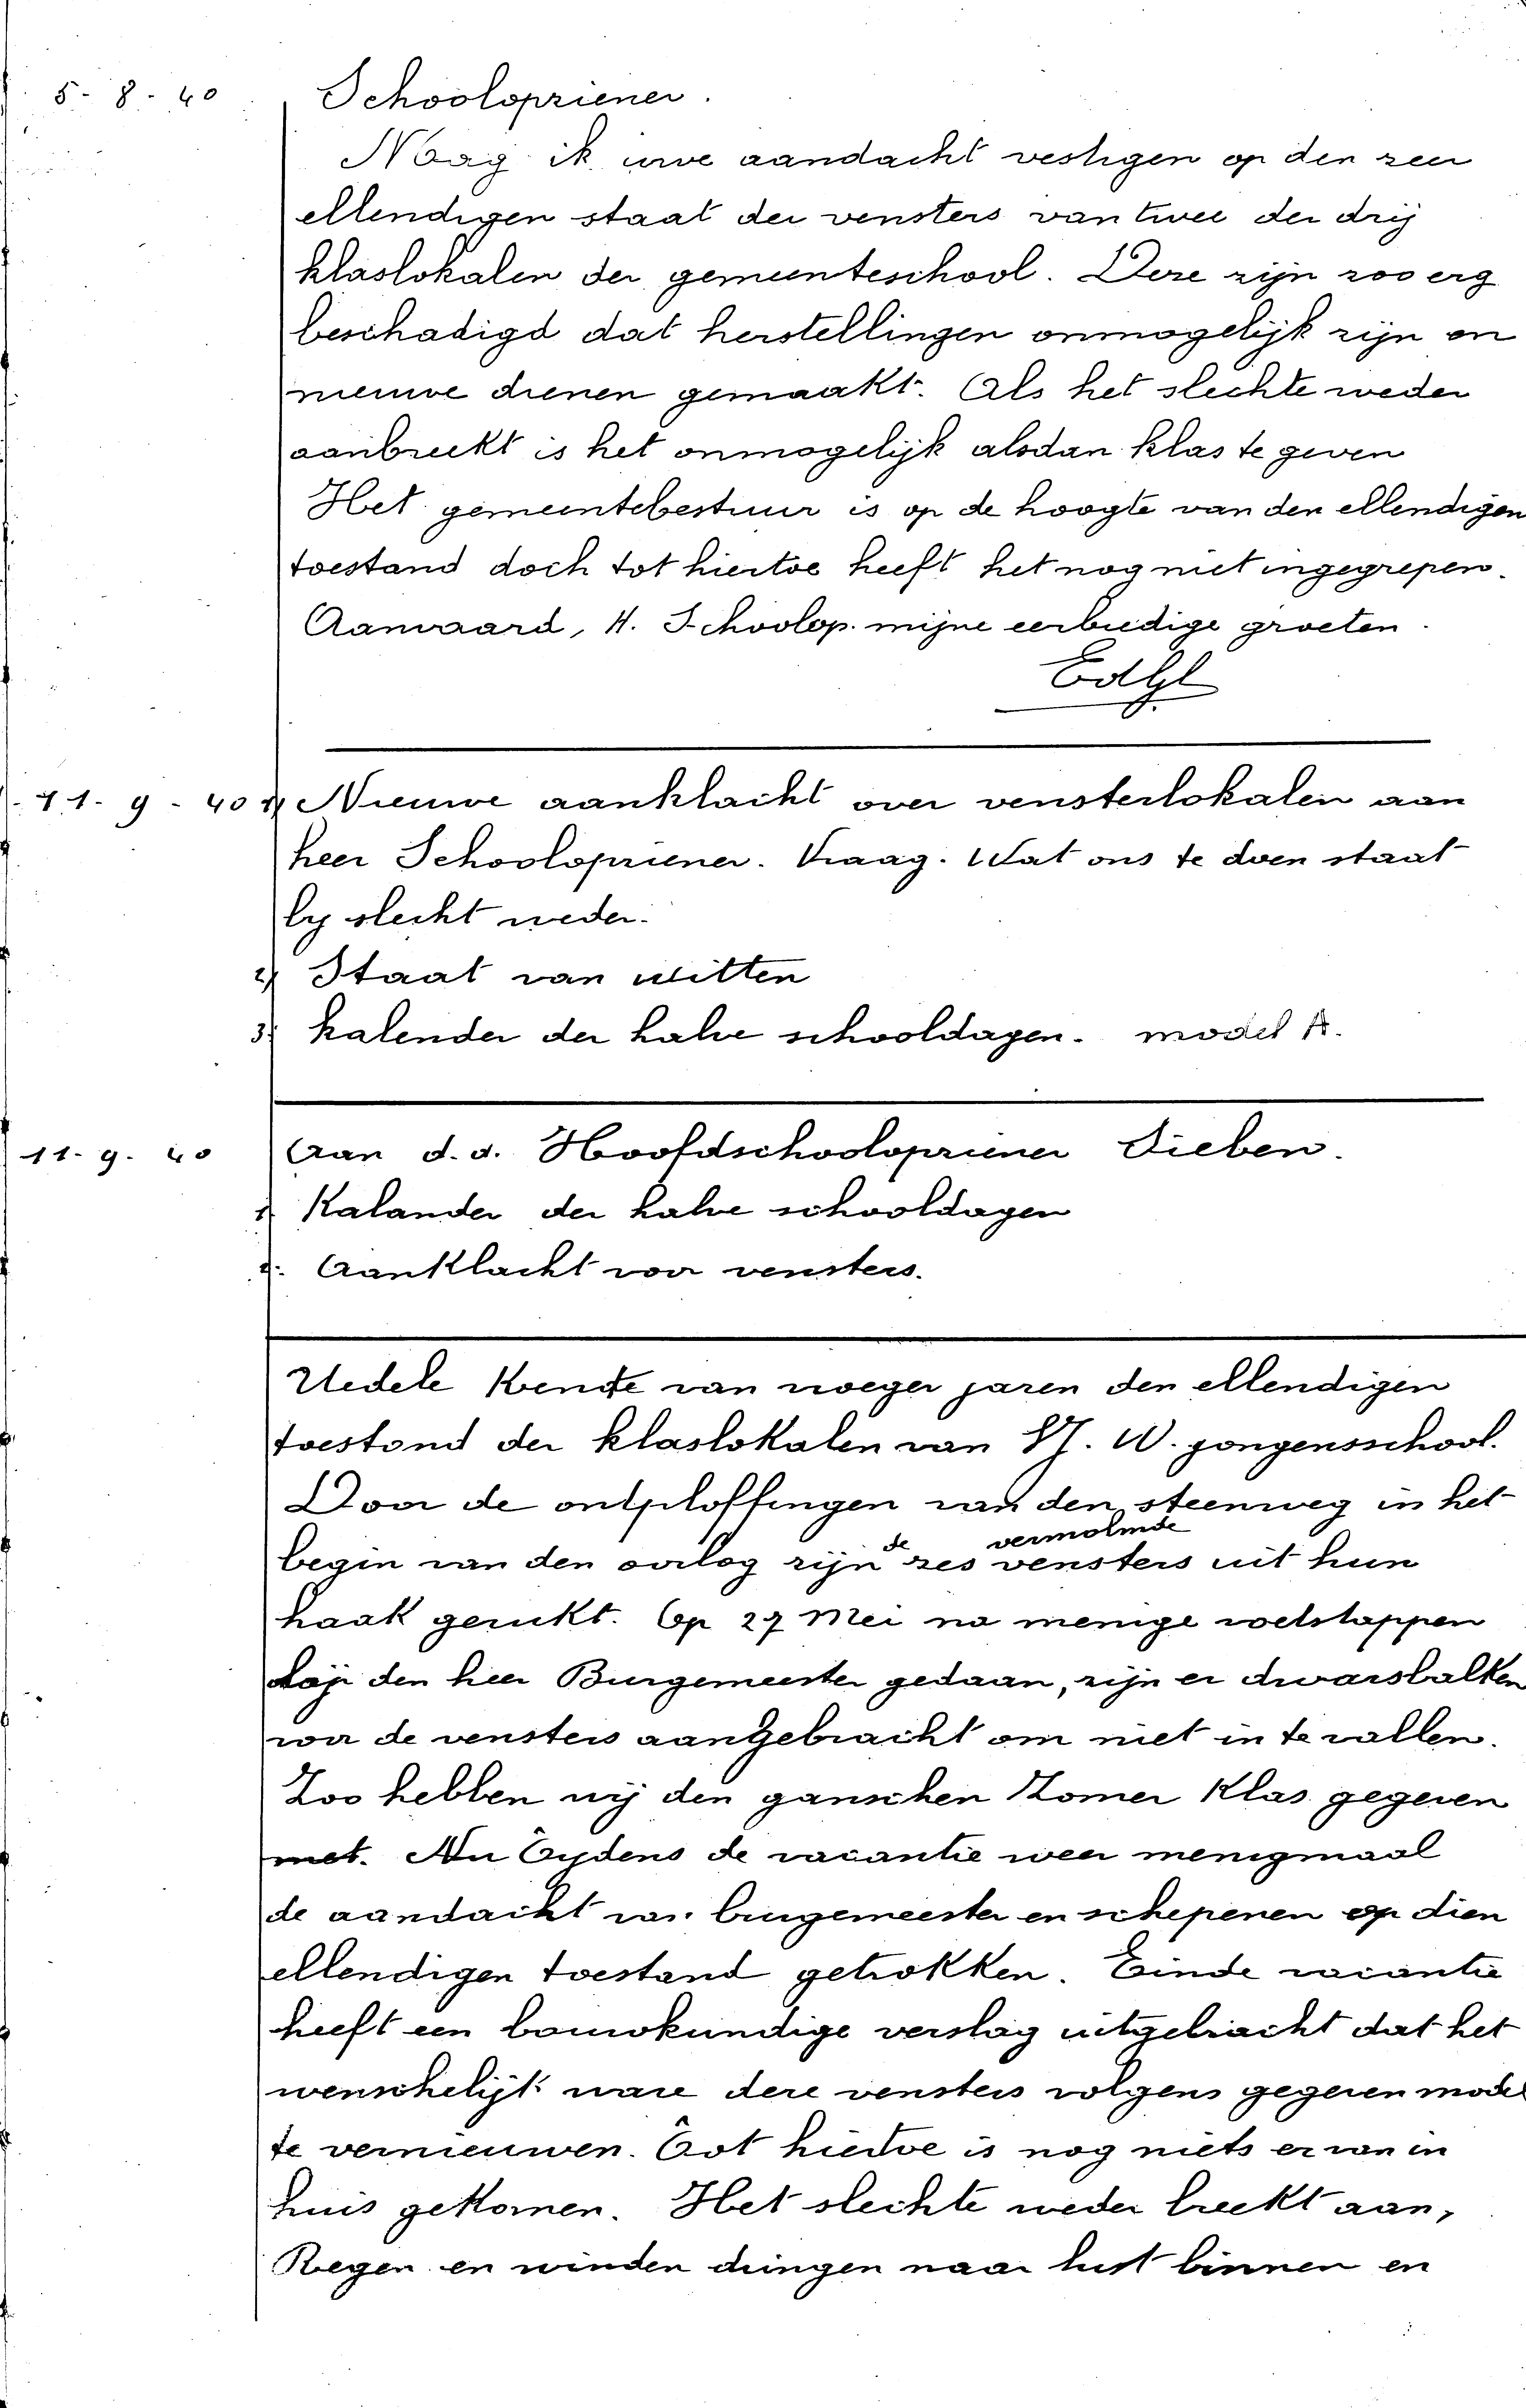 5 - 8 - 40 Schoolopziener.
Mag ik uwe aandacht vestigen op den zeer
ellendigen staat der vensters van twee der drij
klaslokalen der gemeenteschool. Deze zijn zoo erg
beschadigd dat herstellingen onmogelijk zijn en
nieuwe dienen gemaakt. Als het slechte weder
aanbreekt is het onmogelijk alsdan klas te geven
Het gemeentebestuur is op de hoogte van den ellendigen
toestand doch tot hiertoe heeft het nog niet ingegrepen.
Aanvaard, H. Schoolop. mijne eerbiedige groeten.
11 - 9 - 40 1) Nieuwe aanklacht over vensterlokalen aan
heer Schoolopziener. Vraag. Wat ons te doen staat
bij slecht weder.
2) Staat van witten
3) kalender der halve schooldagen. model A.
11 - 9 - 40 Aan d. d. Hoofdschoolopziener Sieben.
1 Kalander der halve schooldagen
2. Aanklacht voor vensters.
Uedele Kende van vroeger jaren den ellendigen
toestond der klaslokalen van W. jongensschool.
Door de ontploffingen van den steenweg in het
begin van den oorlog zijn de zes vermolmde vensters uit hun
haak gerukt. Op 27 Mei na menige voetstappen
bij den heer Burgemeester gedaan, zijn er dwarsbalken
voor de vensters aangebracht om niet in te vallen.
Zoo hebben wij den ganschen Zomer Klas gegeven
met. Nu tijdens de vacantie weer menigmaal
de aandacht van burgemeester en schepenen op dien
ellendigen toestand getrokken. Einde vacantie
heeft een bouwkundige verslag uitgebracht dat het
wenschelijk ware deze vensters volgens gegeven model
te vernieuwen. Tot hiertoe is nog niets ervan in
huis gekomen. Het slechte weder breekt aan,
Regen en winden dringen naar lust binnen en